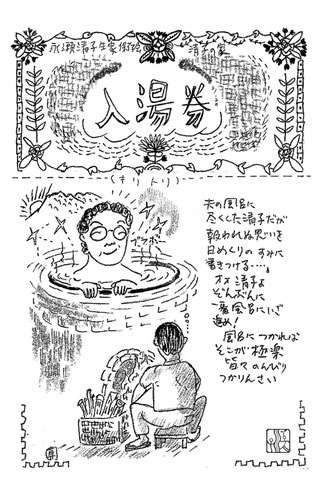 永瀬清子生家保存会 清子の家
入湯券
(キリトリ)
夫の風呂に
尽くした清子だが
報われぬ思いを
日めくりのすみに
書きつける‥‥。
オオ清子よ
ぞんぶんに
一番風呂にいざ
進め!
風呂につかれば
そこが極楽
皆々のんびり
つかりんさい